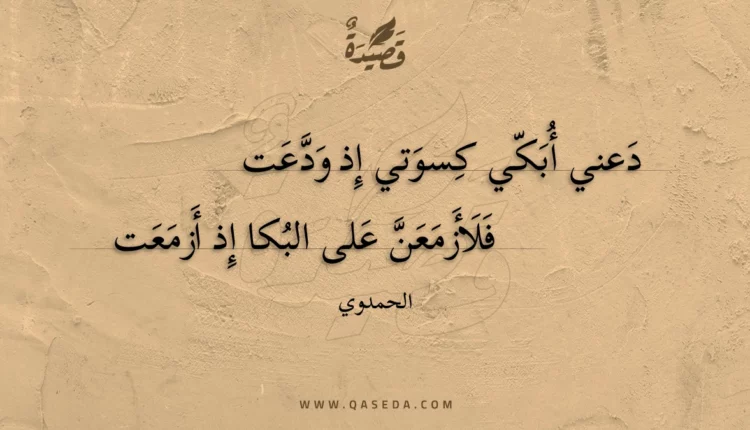 قَصِيدَةٌ
دَعني أُبَكّي كِسوَتي إِذ وَدَّعَت
فَلَأَزمَعَنَّ عَلى البُكا إِذ أَزمَعَت
الحمدوي
WWW.QASEDA.COM